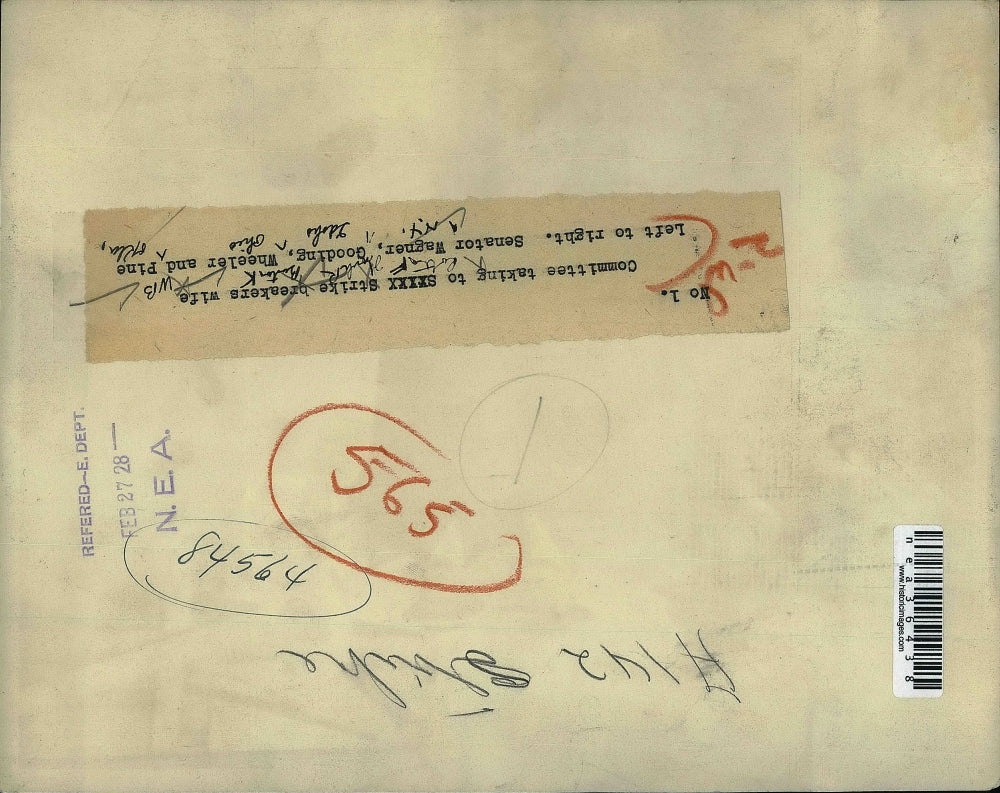 No 1.
Committee taking to SXXXX Strike breakers wife
Left to right. Senator Wagner, Gooding, Wheeler and Pine
N.Y.
Idaho
Ohio
Okla,
WB
2-W
565
1
REFERED—E. DEPT.
FEB 27 28 —
N. E. A.
49548
#142 Strike
nea36438
www.historicimages.com